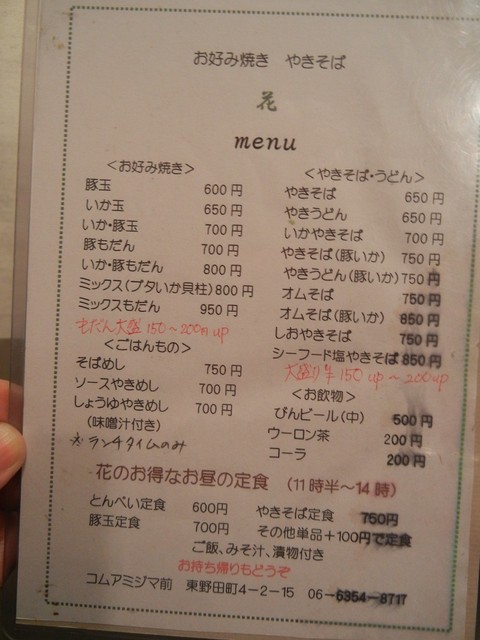 お好み焼き やきそば
花
menu
<お好み焼き>
豚玉 600円
いか玉 650円
いか・豚玉 700円
豚もだん 700円
いか・豚もだん 800円
ミックス(ブタいか貝柱) 800円
ミックスもだん 950円
もだん大盛 150～200円up
<ごはんもの>
そばめし 750円
ソースやきめし 700円
しょうゆやきめし 700円
(味噌汁付き)
※ランチタイムのみ
<やきそば・うどん>
やきそば 650円
やきうどん 650円
いかやきそば 700円
やきそば(豚いか) 750円
やきうどん(豚いか) 750円
オムそば 750円
オムそば(豚いか) 850円
しおやきそば 750円
シーフード塩やきそば 850円
大盛り¥150up～200up
<お飲物>
びんビール(中) 500円
ウーロン茶 200円
コーラ 200円
花のお得なお昼の定食 (11時半～14時)
とんぺい定食 600円 やきそば定食 750円
豚玉定食 700円 その他単品+100円で定食
ご飯、みそ汁、漬物付き
お持ち帰りもどうぞ
コムアミジマ前 東野田町4-2-15 06-6354-8717